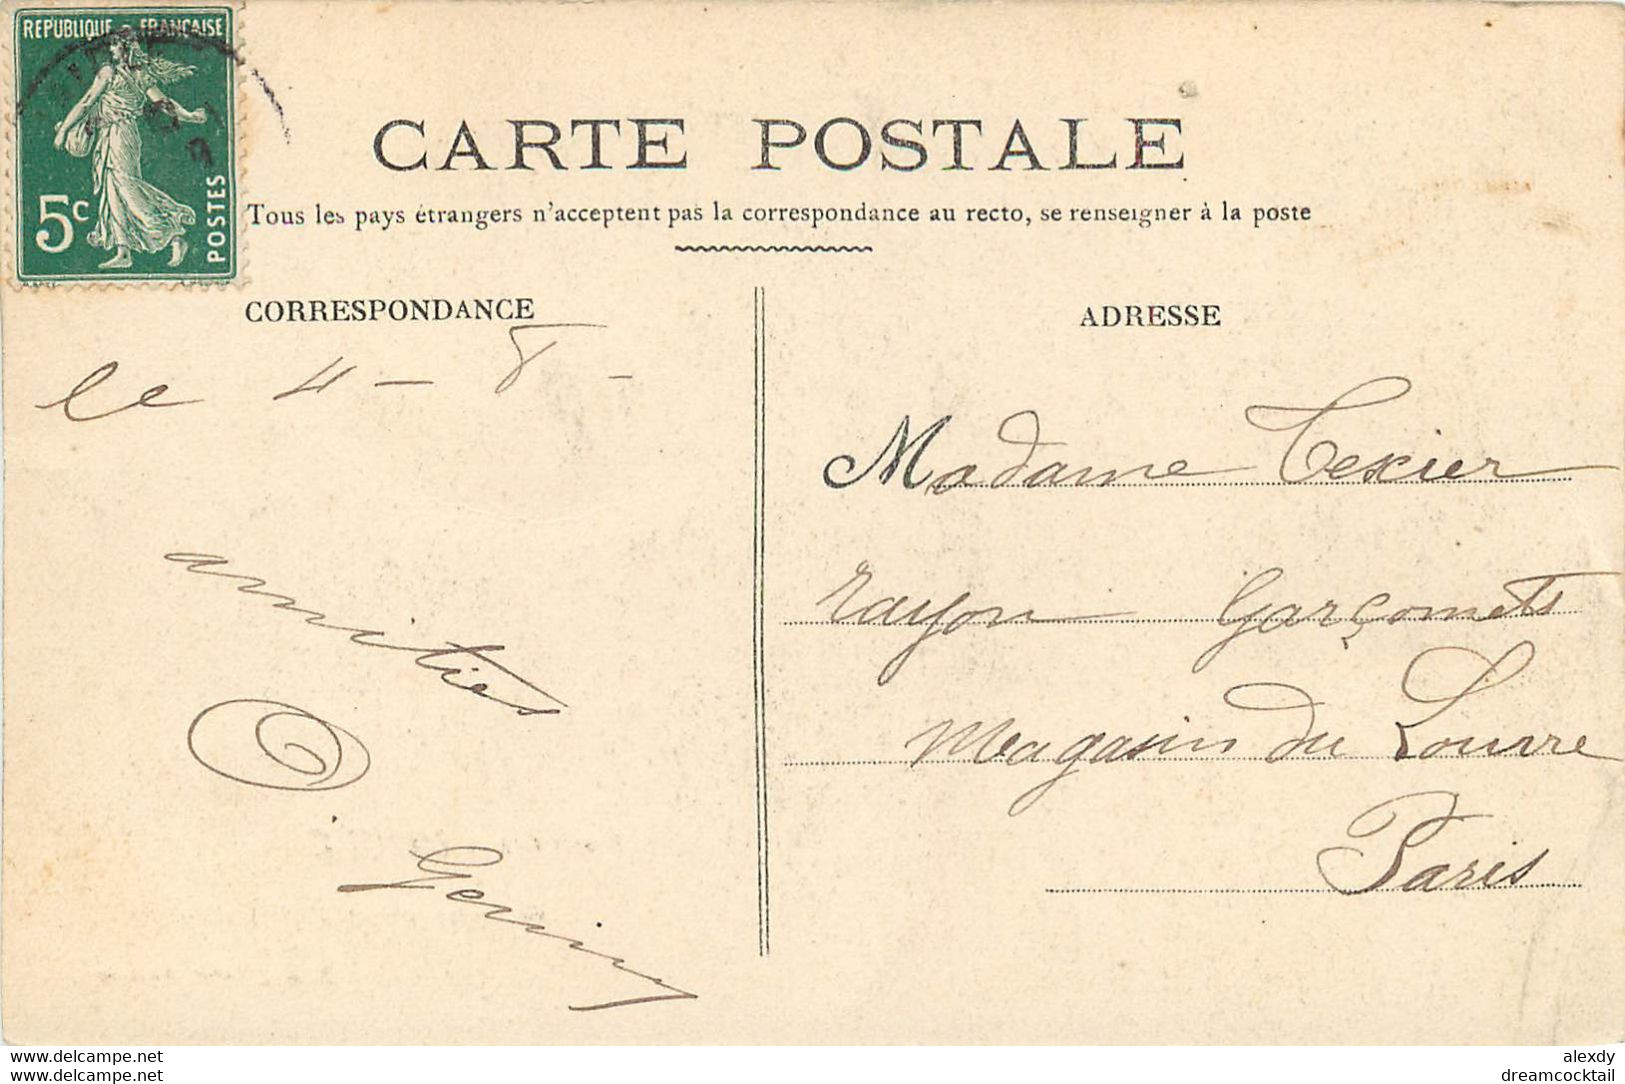 REPUBLIQUE FRANCAISE
5c
POSTES
CARTE POSTALE
Tous les pays étrangers n'acceptent pas la correspondance au recto, se renseigner à la poste
CORRESPONDANCE
le 4 - 8 -
amitiés
O. 
ADRESSE
Madame Texier
rayon Garçonnets
Magasin du Louvre
Paris
www.delcampe.net
www.delcampe.net
alexdy
dreamcocktail